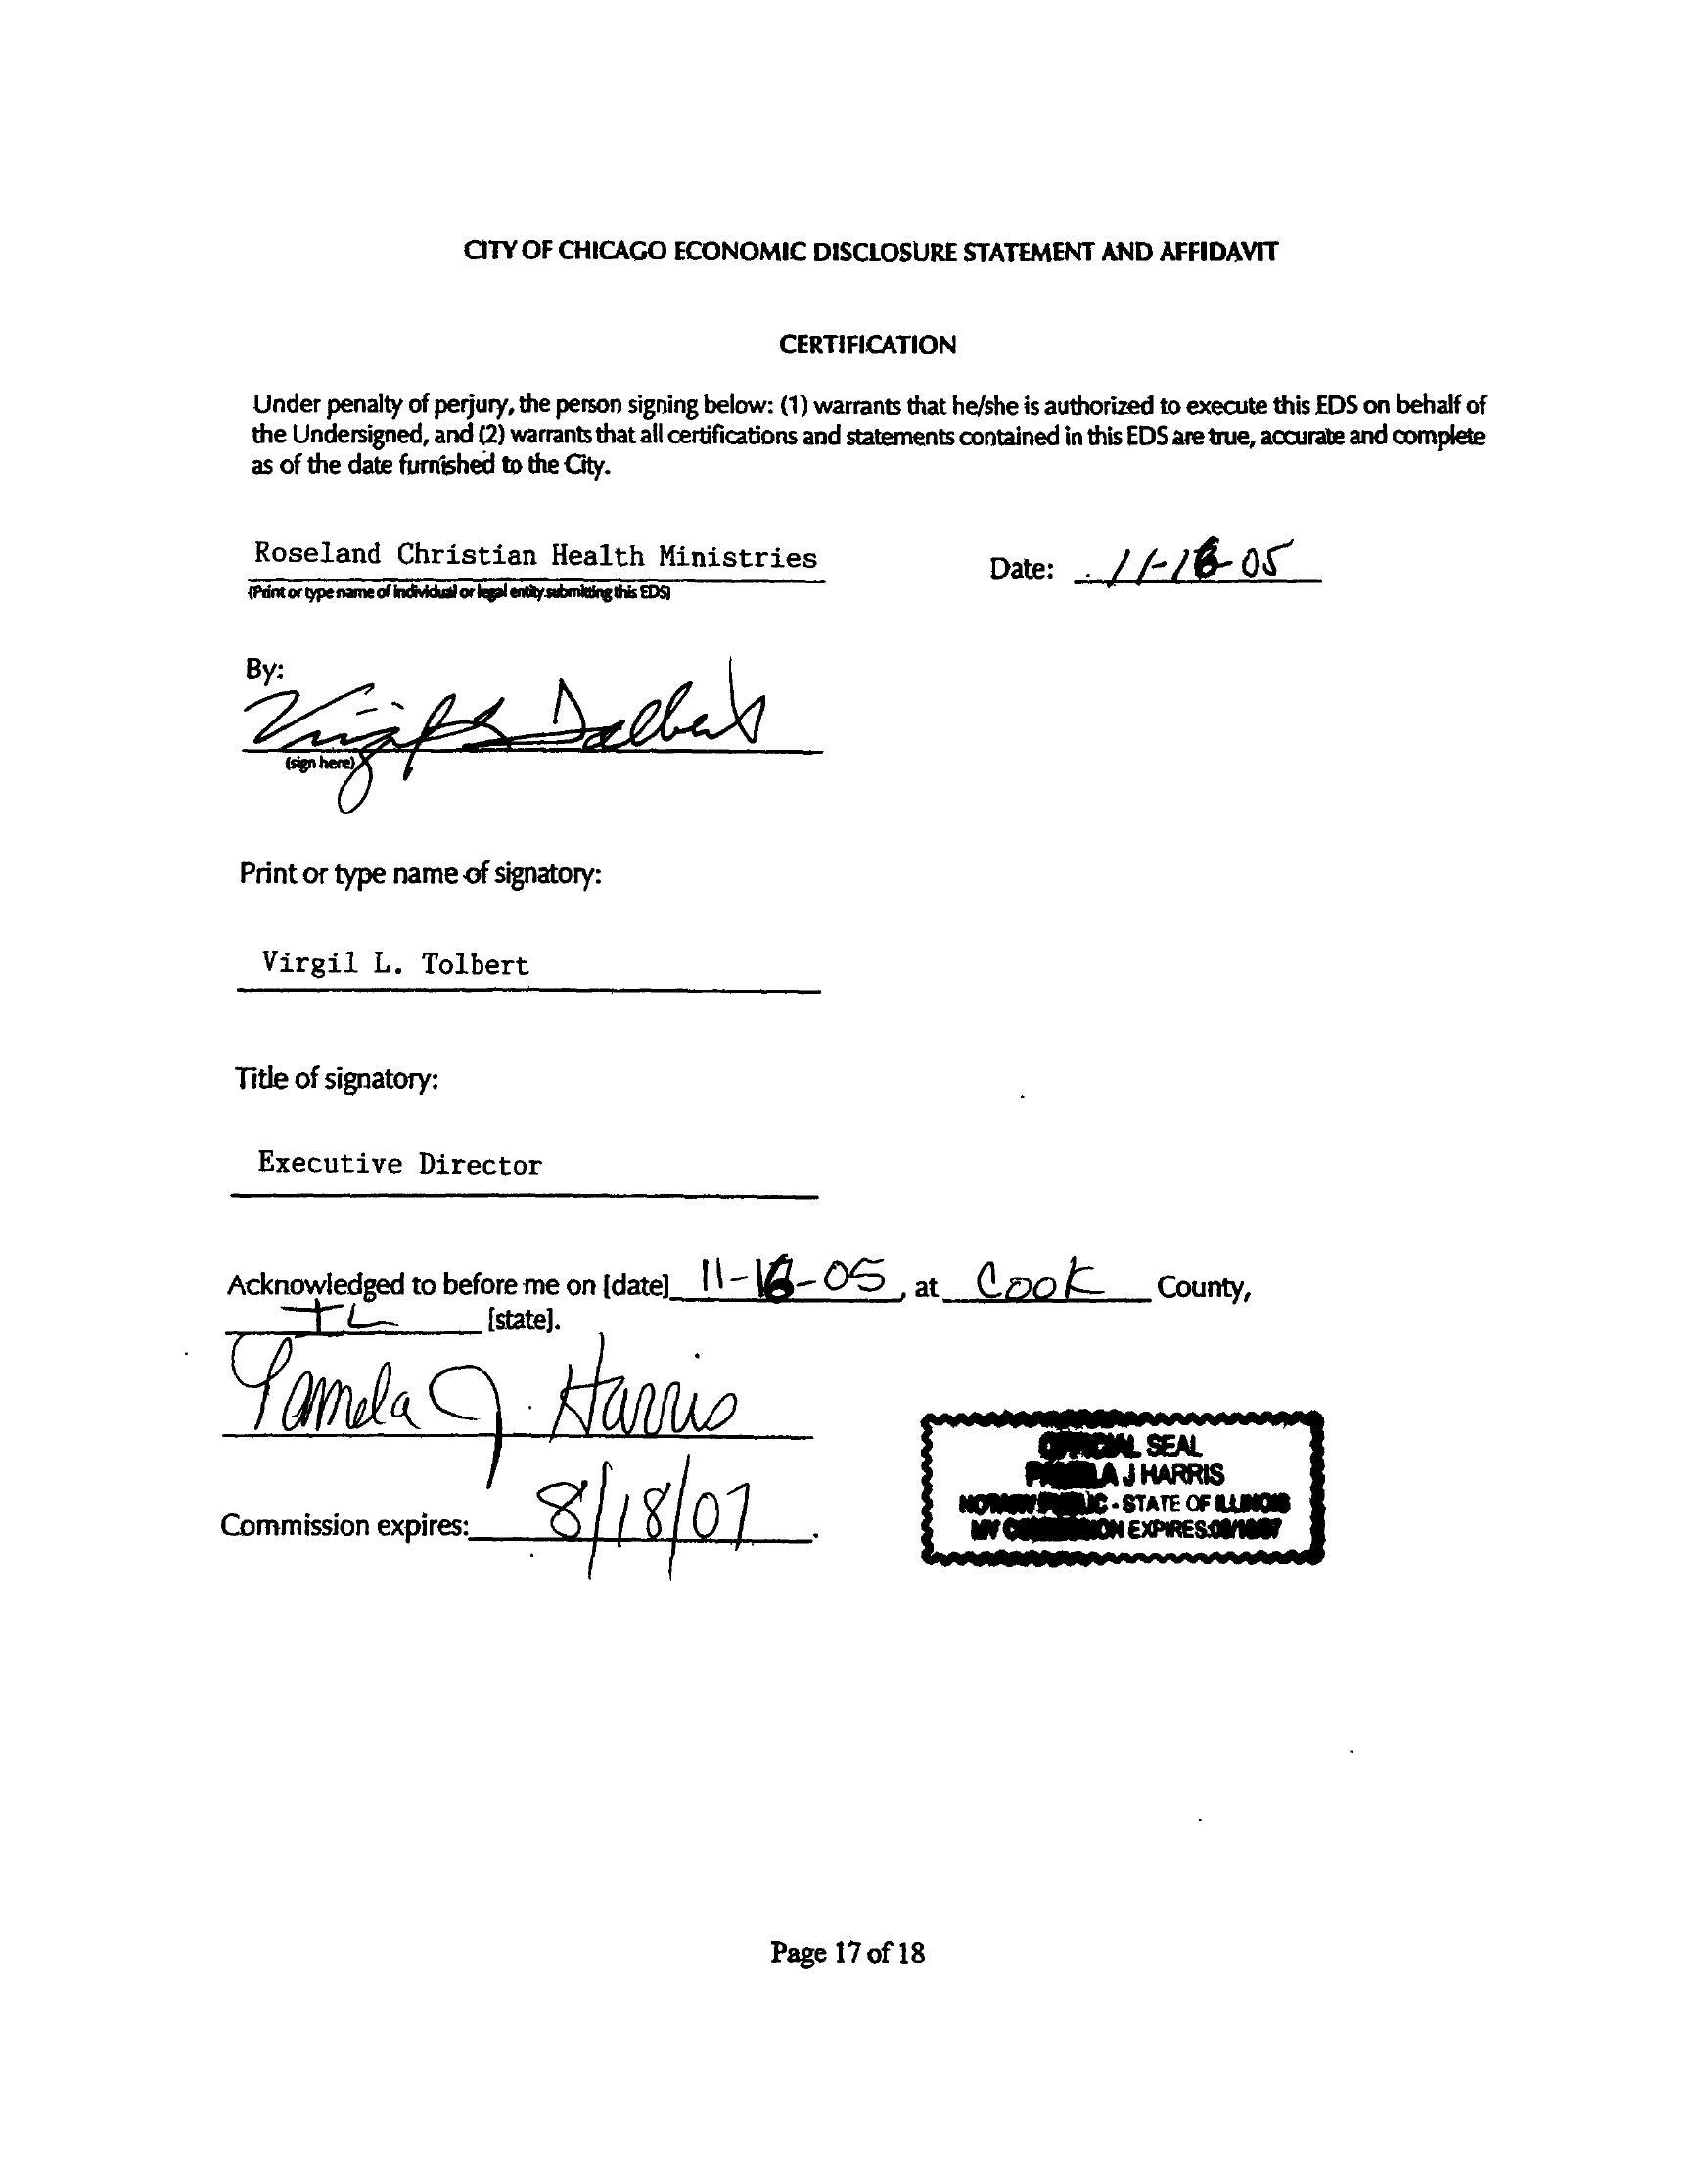 CITY OF CHICAGO ECONOMIC DISCLOSURE STATEMENT AND AFFIDAVIT
CERTIFICATION
Under penalty of perjury, the person signing below: (1) warrants that he/she is authorized to execute this EDS on behalf of
the Undersigned, and (2) warrants that all certifications and statements contained in this EDS are true, accurate and complete
as of the date furnished to the City.
Roseland Christian Health Ministries
Date: 11-16-05
(Print or type name of individual or legal entity submitting this EDS)
By:
Virgil L Tolbert
(sign here)
Print or type name of signatory:
Virgil L. Tolbert
Title of signatory:
Executive Director
Acknowledged to before me on [date] 11-16-05, at Cook County,
IL [state].
Pamela J. Harris
OFFICIAL SEAL
PAMELA J HARRIS
NOTARY PUBLIC - STATE OF ILLINOIS
MY COMMISSION EXPIRES:08/18/07
Commission expires: 8/18/07.
Page 17 of 18